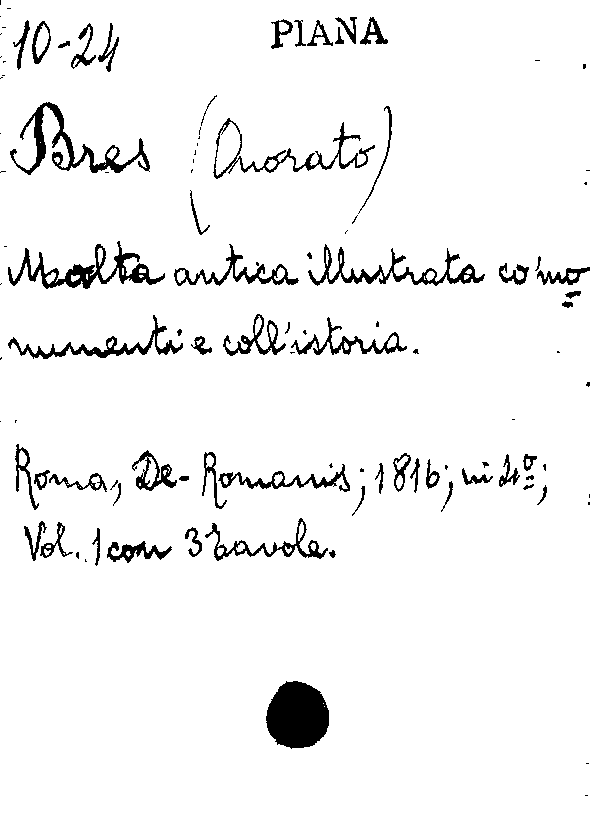 10-24 PIANA
Bres (Onorato)
Malta antica illustrata co'mo=
numenti e coll'istoria.
Roma, De-Romanis; 1816; in 4º;
Vol. 1 con 3 tavole.